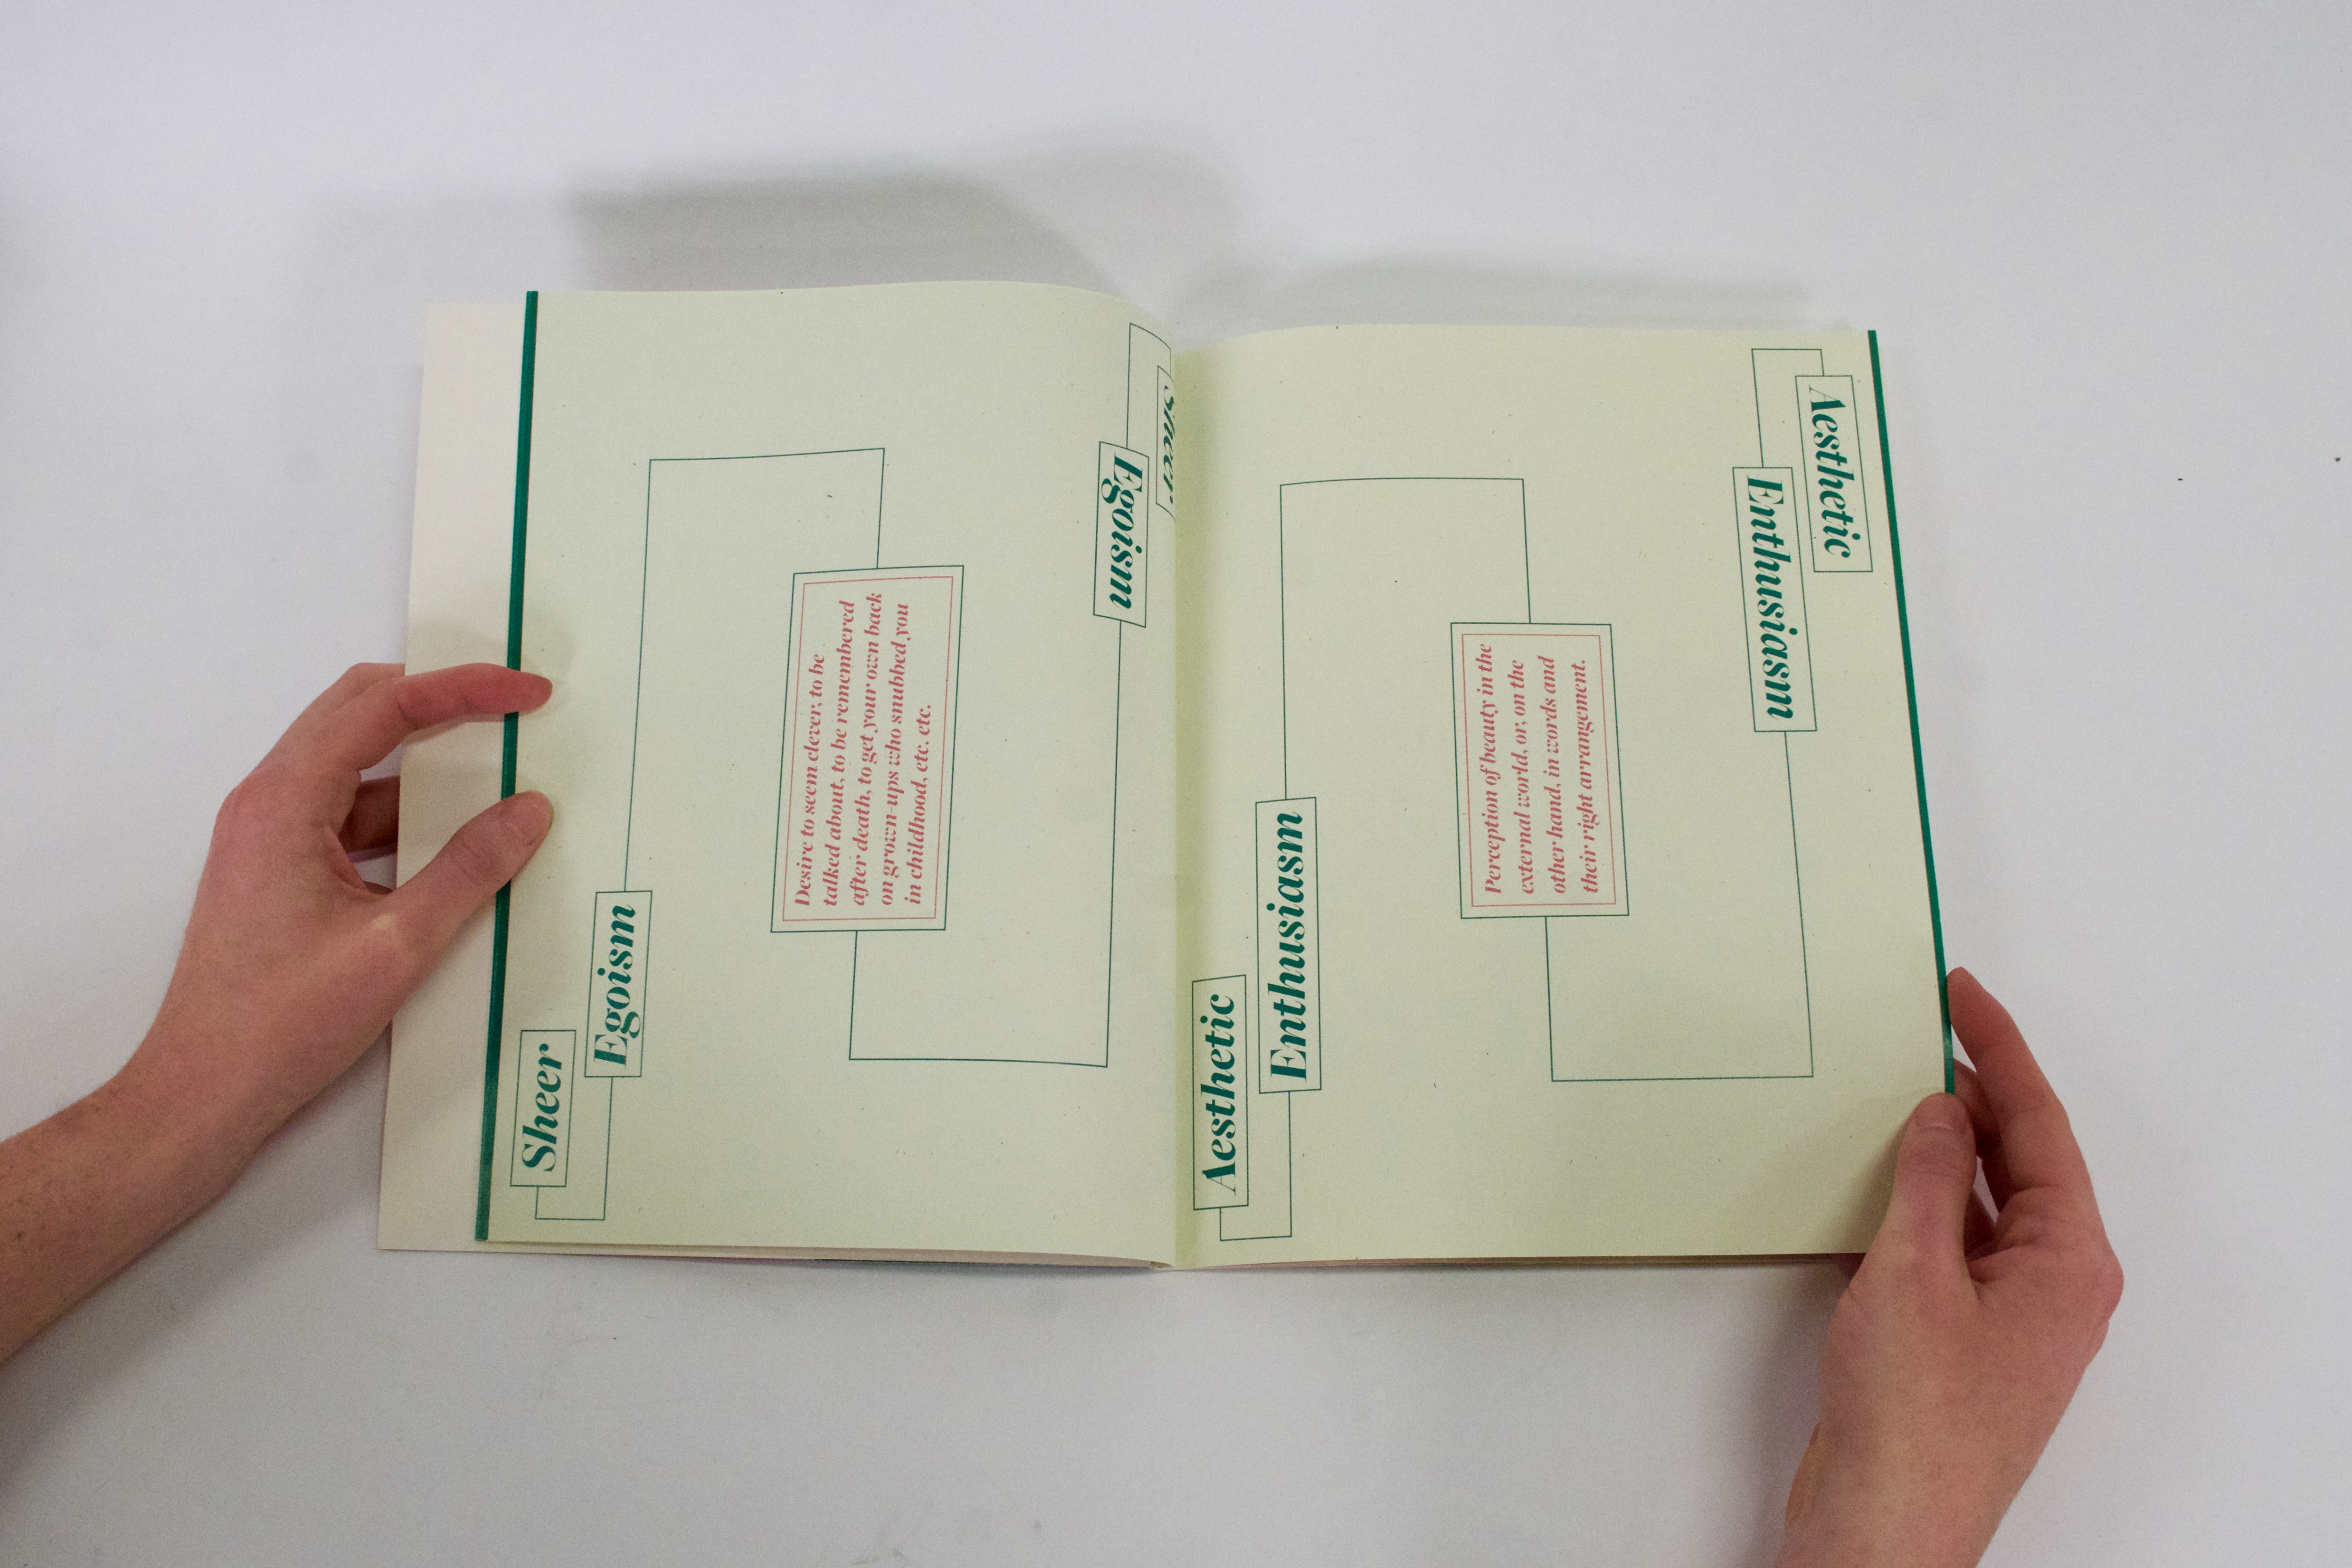 Sheer
Egoism
Desire to seem clever, to be
talked about, to be remembered
after death, to get your own back
on grown-ups who snubbed you
in childhood, etc. etc.
Egoism
Sheer
Aesthetic
Enthusiasm
Perception of beauty in the
external world, or, on the
other hand, in words and
their right arrangement.
Aesthetic
Enthusiasm